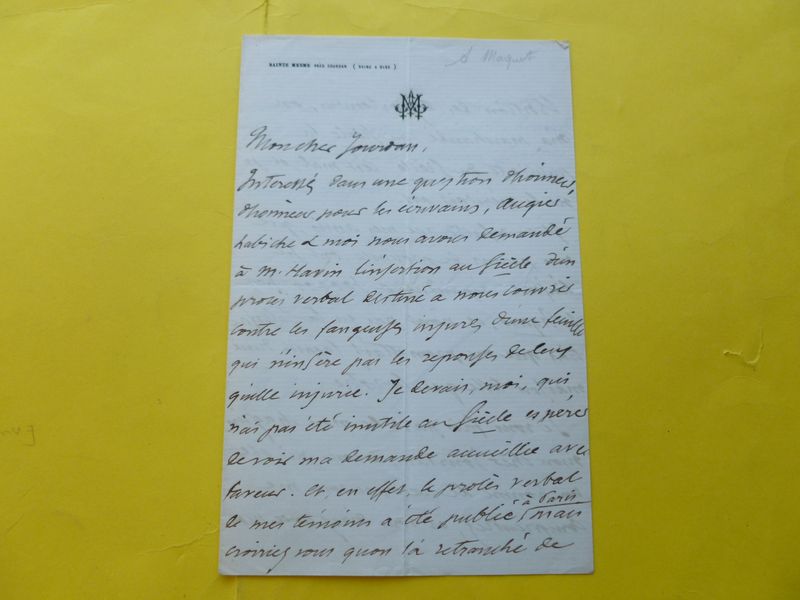 SAINTE MESME PRÈS DOURDAN (SEINE & OISE)
A Maquet
AM
Mon cher Jourdan,
Interessé dans une question d'honneur,
d'honneur pour les écrivains, Augier
Labiche & moi nous avons demandé
à M. Havin l'insertion au Siècle d'un
procès verbal destiné a nous couvrir
contre les fangeuses injures d'une feuille
qui n'insère pas les reponses de ceux
qu'elle injurie. Je devais, moi, qui
n'ai pas été inutile au Siècle esperer
de voir ma demande accueillie avec
faveur. Et, en effet, le procès verbal
de mes témoins a été publié à Paris mais
croiriez vous qu'on l'a retranché de